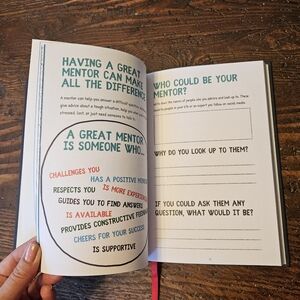 HAVING A GREAT
MENTOR CAN MAKE
ALL THE DIFFERENCE
A mentor can help you answer a difficult question,
give advice about a tough situation, help you when you
stressed, lost, or just need someone to talk to.
A GREAT MENTOR
IS SOMEONE WHO...
CHALLENGES YOU
HAS A POSITIVE
RESPECTS YOU
IS MORE EXPERIENCED
GUIDES YOU TO FIND ANSWERS
IS AVAILABLE
PROVIDES CONSTRUCTIVE
CHEERS FOR YOUR SUCCESS
IS SUPPORTIVE
WHO COULD BE YOUR
MENTOR?
the names of people you admire and look up to. These
be people in your life or on support you follow on social media.
WHY DO YOU LOOK UP TO THEM?
IF YOU COULD ASK THEM ANY
QUESTION, WHAT WOULD IT BE?